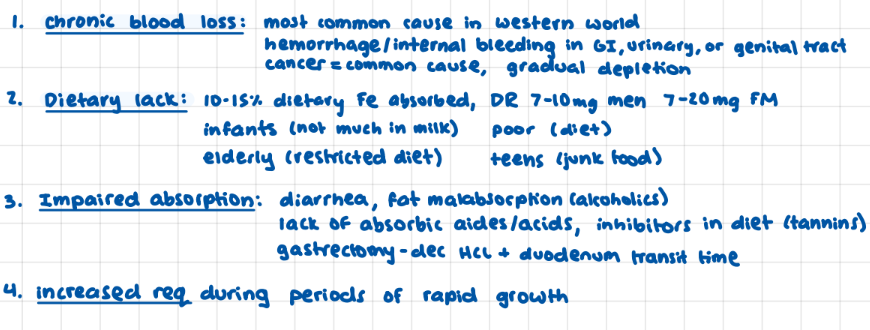 1. chronic blood loss: most common cause in western world
hemorrhage/internal bleeding in GI, urinary, or genital tract
cancer = common cause, gradual depletion
2. Dietary lack: 10-15% dietary Fe absorbed, DR 7-10mg men 7-20mg FM
infants (not much in milk) poor (diet)
elderly (restricted diet) teens (junk food)
3. Impaired absorption: diarrhea, fat malabsorption (alcoholics)
lack of absorbic aides/acids, inhibitors in diet (tannins)
gastrectomy - dec HCL + duodenum transit time
4. increased req during periods of rapid growth